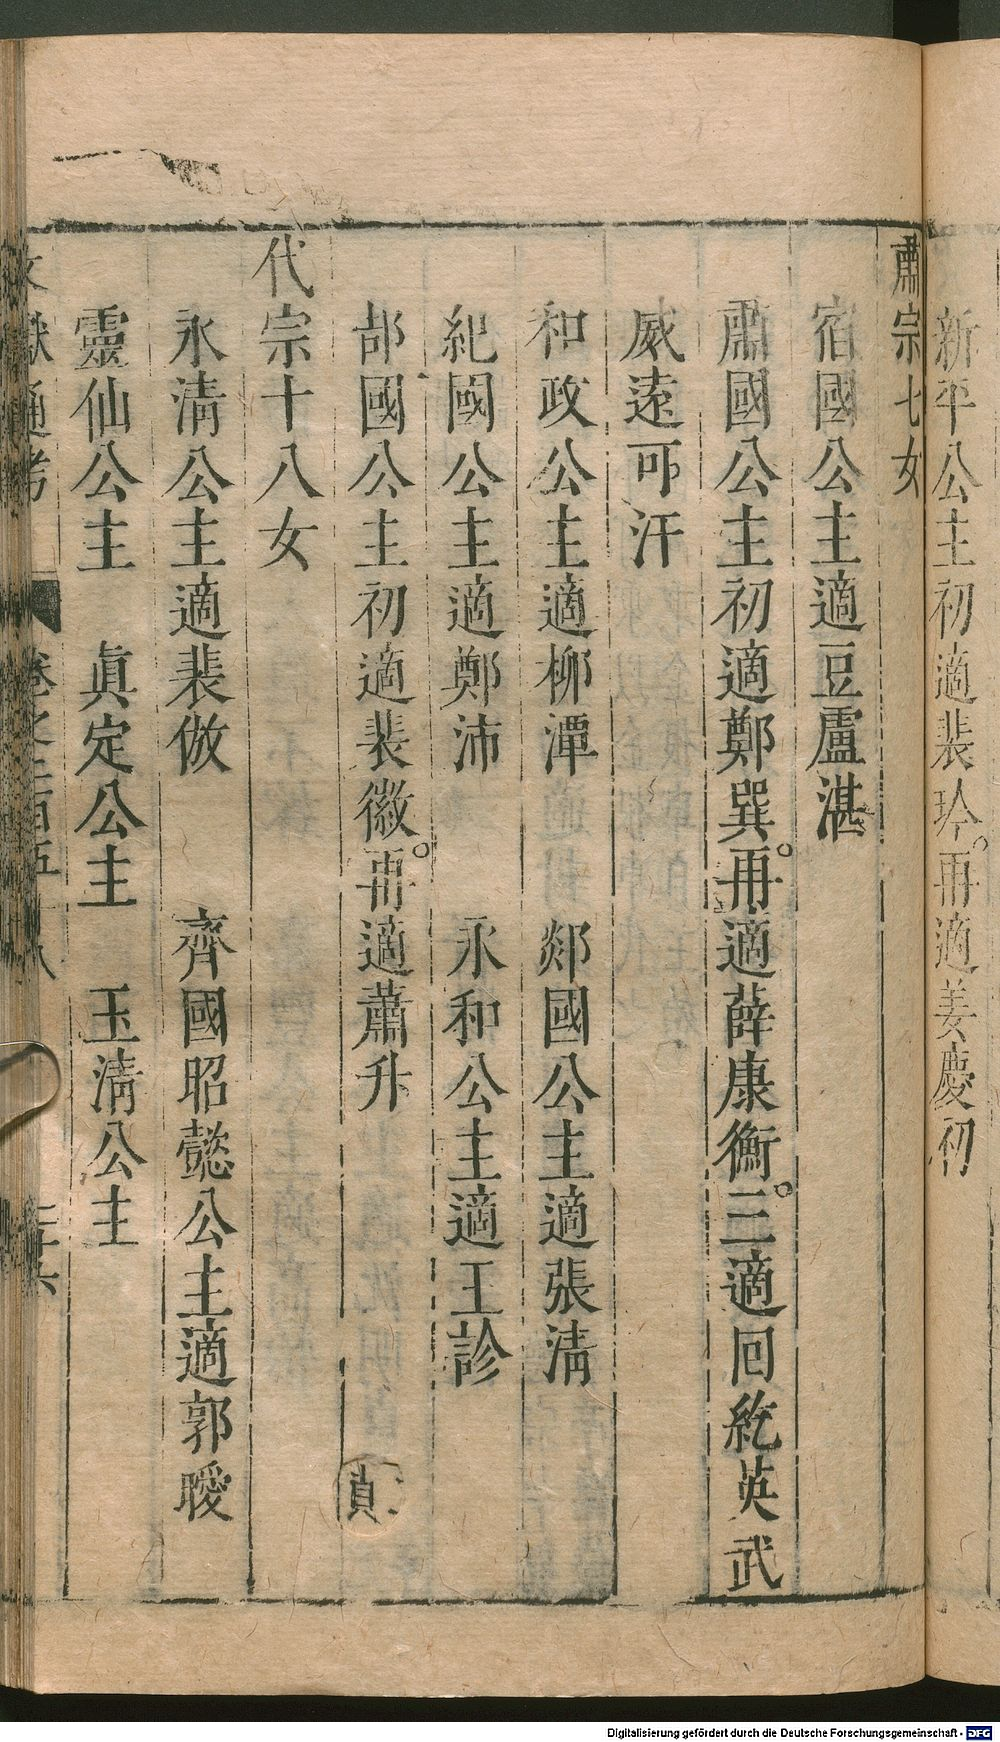 新平公主初適裴玪。再適姜慶初
肅宗七女
宿國公主適豆盧湛
肅國公主初適鄭巽。再適薛康衡。三適回紇英武
威遠可汗
和政公主適柳潭　郯國公主適張清
紀國公主適鄭沛　永和公主適王診
郜國公主初適裴徽。再適蕭升
代宗十八女
永清公主適裴倣　齊國昭懿公主適郭曖
靈仙公主　眞定公主　玉清公主
文獻通考　卷之二百五十八
Digitalisierung gefördert durch die Deutsche Forschungsgemeinschaft - DFG